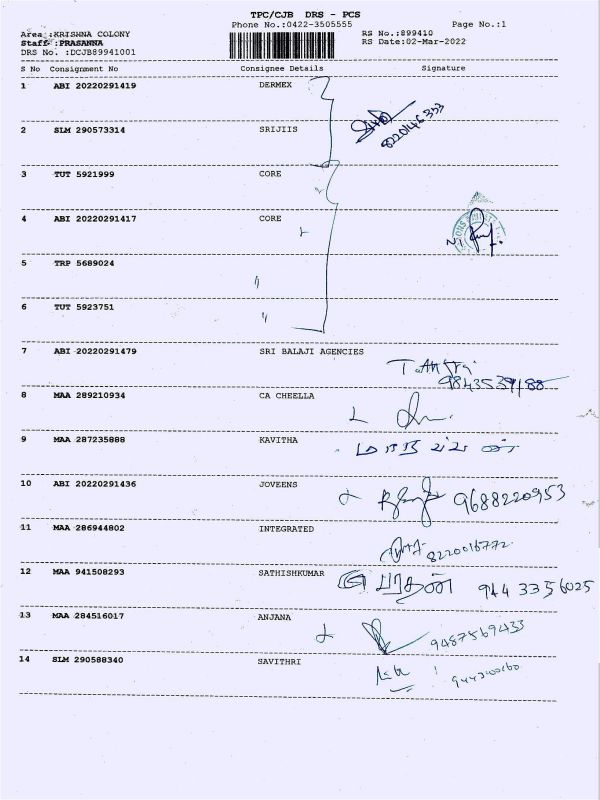 TPC/CJB DRS - PCS
Phone No.:0422-3505555 Page No.:1
Area :KRISHNA COLONY RS No.:899410
Staff :PRASANNA RS Date:02-Mar-2022
DRS No. :DCJB89941001
S No Consignment No Consignee Details Signature
1 ABI 20220291419 DERMEX
8220146333
2 SLM 290573314 SRIJIIS
3 TUT 5921999 CORE
4 ABI 20220291417 CORE
5 TRP 5689024 "
6 TUT 5923751 "
7 ABI 20220291479 SRI BALAJI AGENCIES
8 MAA 289210934 CA CHEELLA
9 MAA 287235888 KAVITHA
10 ABI 20220291436 JOVEENS 9688220953
11 MAA 286944802 INTEGRATED 8220016772
12 MAA 941508293 SATHISHKUMAR 944 3356025
13 MAA 284516017 ANJANA 9487569433
14 SLM 290588340 SAVITHRI